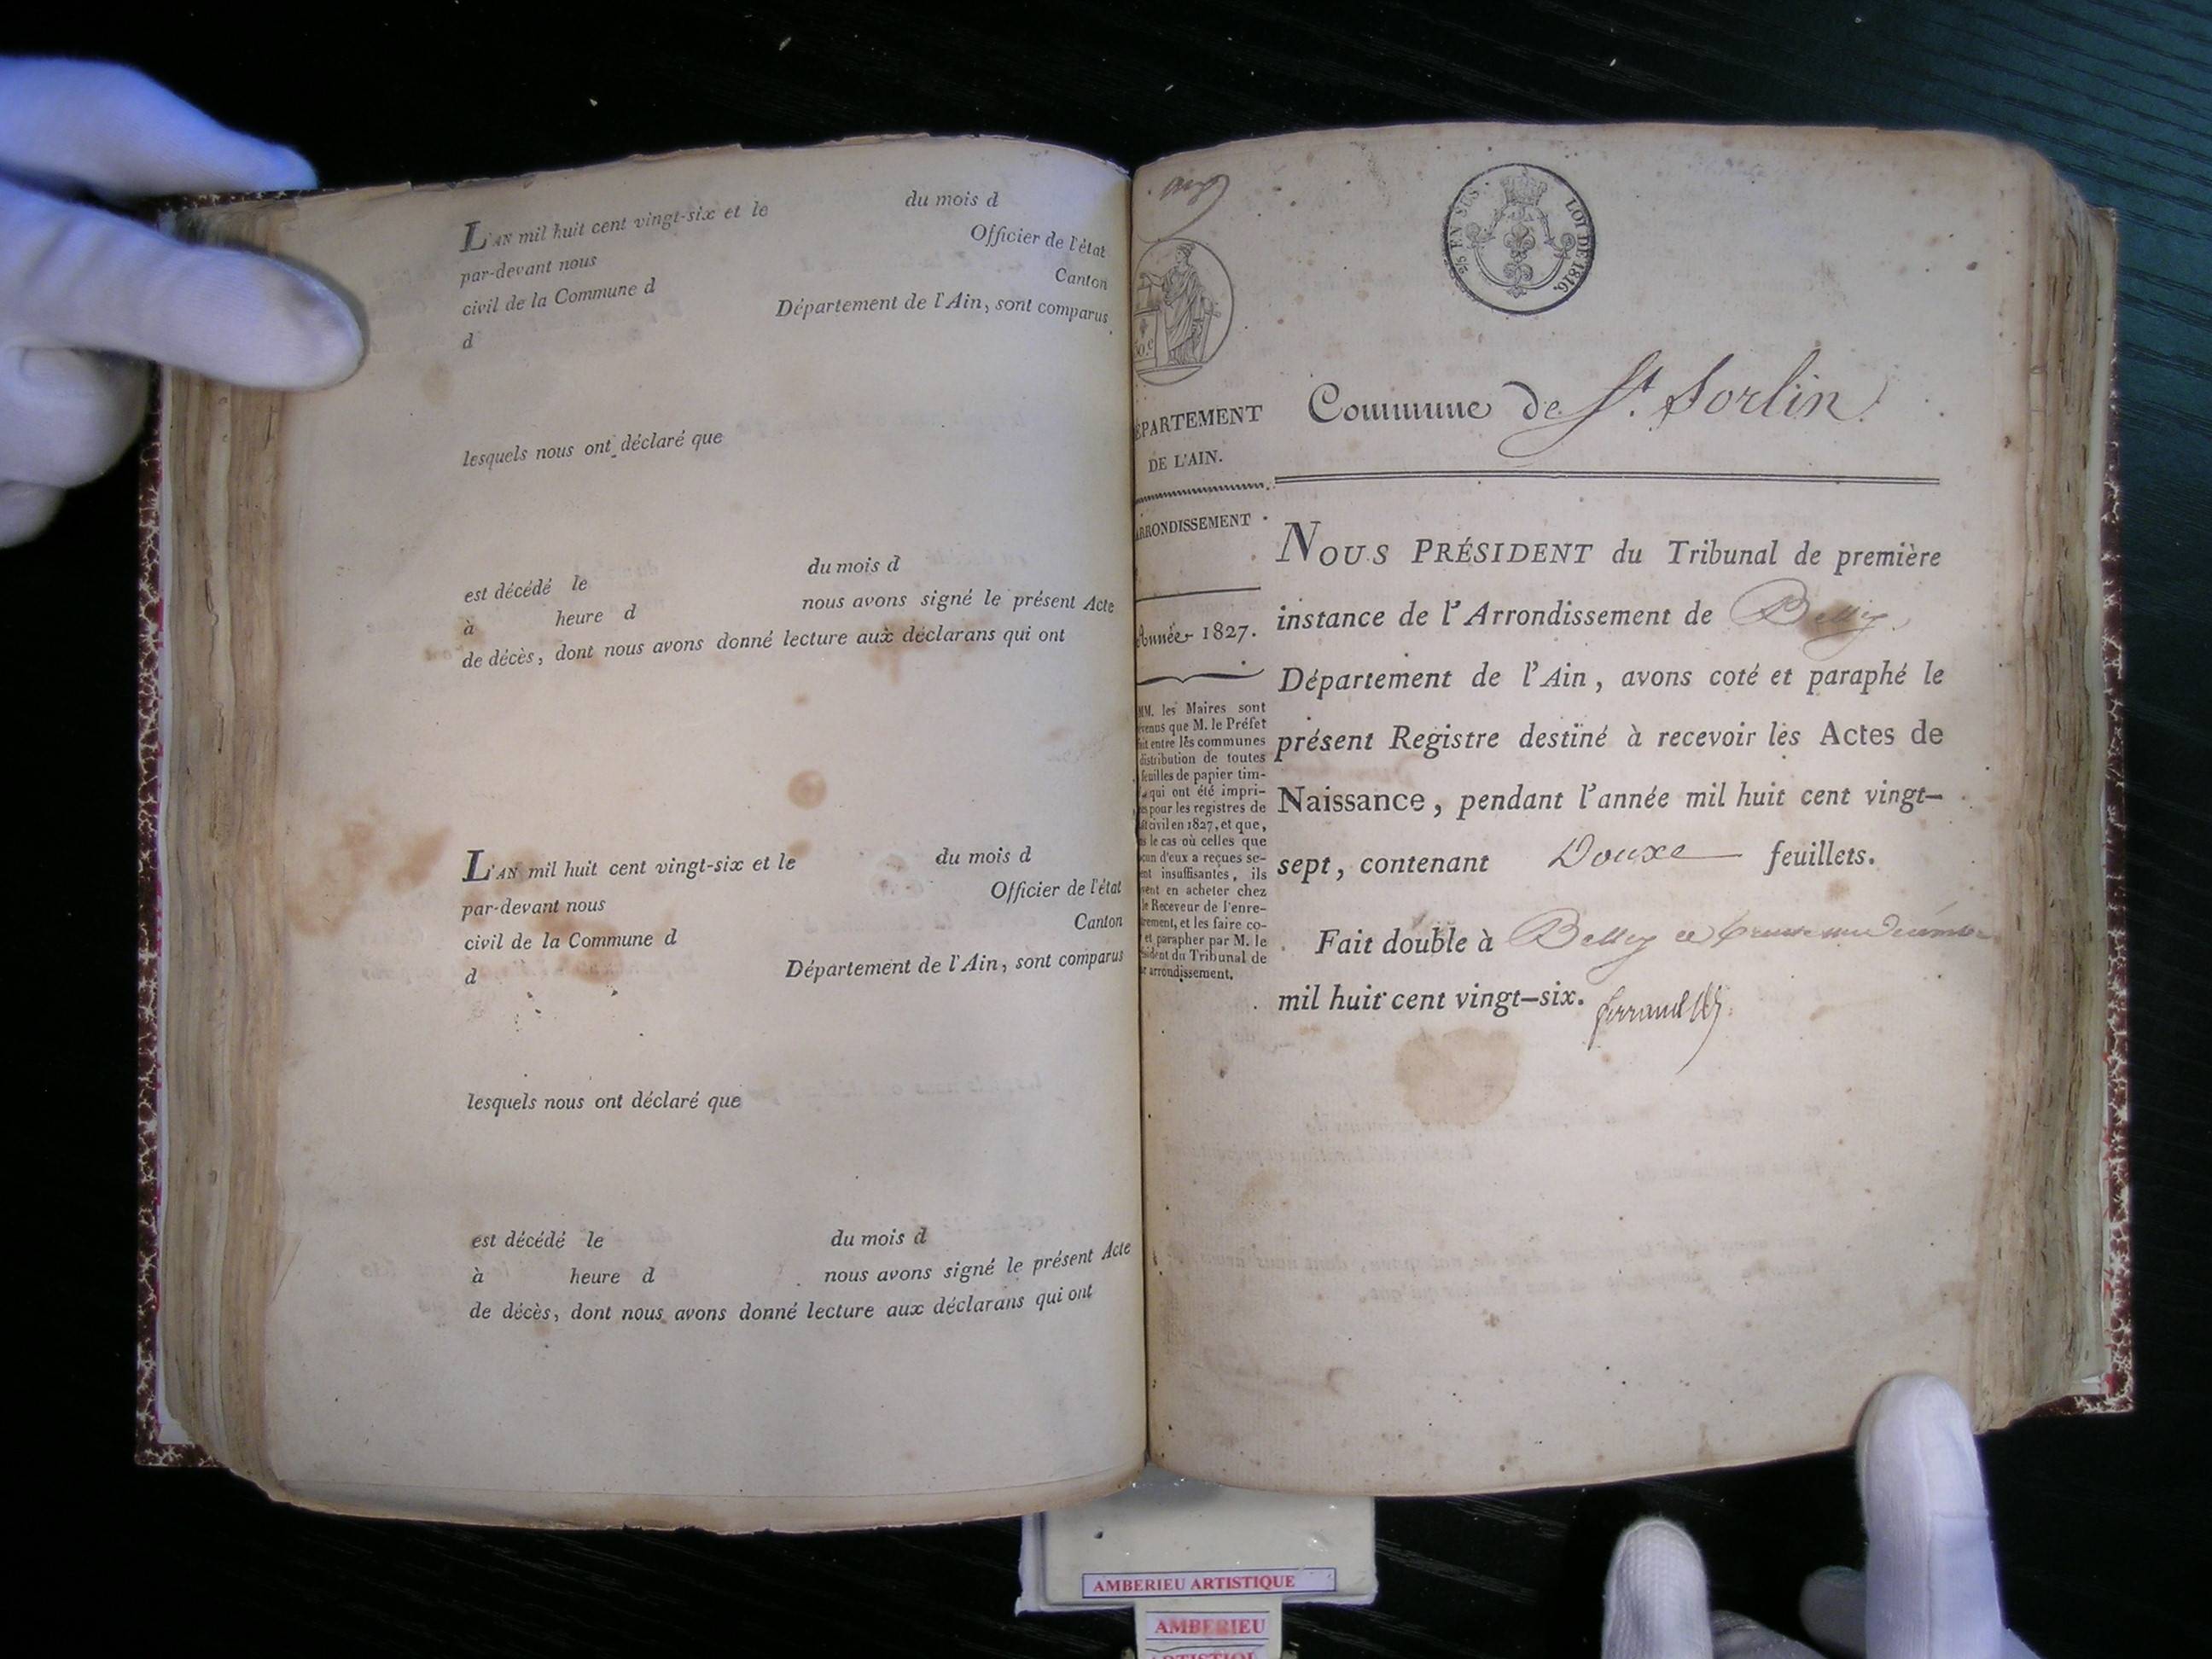 L'AN mil huit cent vingt-six et le du mois d
par-devant nous Officier de l'état
civil de la Commune d Canton
d Département de l'Ain, sont comparus
lesquels nous ont déclaré que
est décédé le du mois d
à heure d nous avons signé le présent Acte
de décès, dont nous avons donné lecture aux déclarans qui ont
L'AN mil huit cent vingt-six et le du mois d
par-devant nous Officier de l'état
civil de la Commune d Canton
d Département de l'Ain, sont comparus
lesquels nous ont déclaré que
est décédé le du mois d
à heure d nous avons signé le présent Acte
de décès, dont nous avons donné lecture aux déclarans qui ont
EN SUS
LOI DE 1816.
ÉPARTEMENT
DE L'AIN.
ARRONDISSEMENT
Année 1827.
MM. les Maires sont
venus que M. le Préfet
it entre les communes
distribution de toutes
feuilles de papier tim-
qui ont été impri-
pour les registres de
civil en 1827, et que,
le cas où celles que
cun d'eux a reçues se-
ent insuffisantes, ils
vent en acheter chez
le Receveur de l'enre-
rement, et les faire co-
et parapher par M. le
sident du Tribunal de
r arrondissement.
Commune de St. Sorlin
NOUS PRÉSIDENT du Tribunal de première
instance de l'Arrondissement de Belley
Département de l'Ain, avons coté et paraphé le
présent Registre destiné à recevoir les Actes de
Naissance, pendant l'année mil huit cent vingt-
sept, contenant Douze feuillets.
Fait double à Belley le décembre
mil huit cent vingt-six.
AMBERIEU ARTISTIQUE
AMBERIEU
ARTISTIQUE